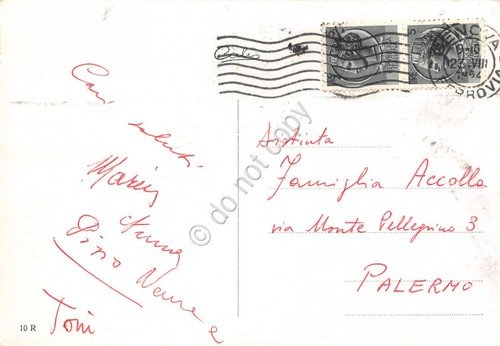 Cari saluti
Maria
Pino
Toni
10 R
GENOVA
9-10
22 VIII
1964
FERROVIA
5
Distinta
Famiglia Accolla
via Monte Pellegrino 3
PALERMO
do not copy